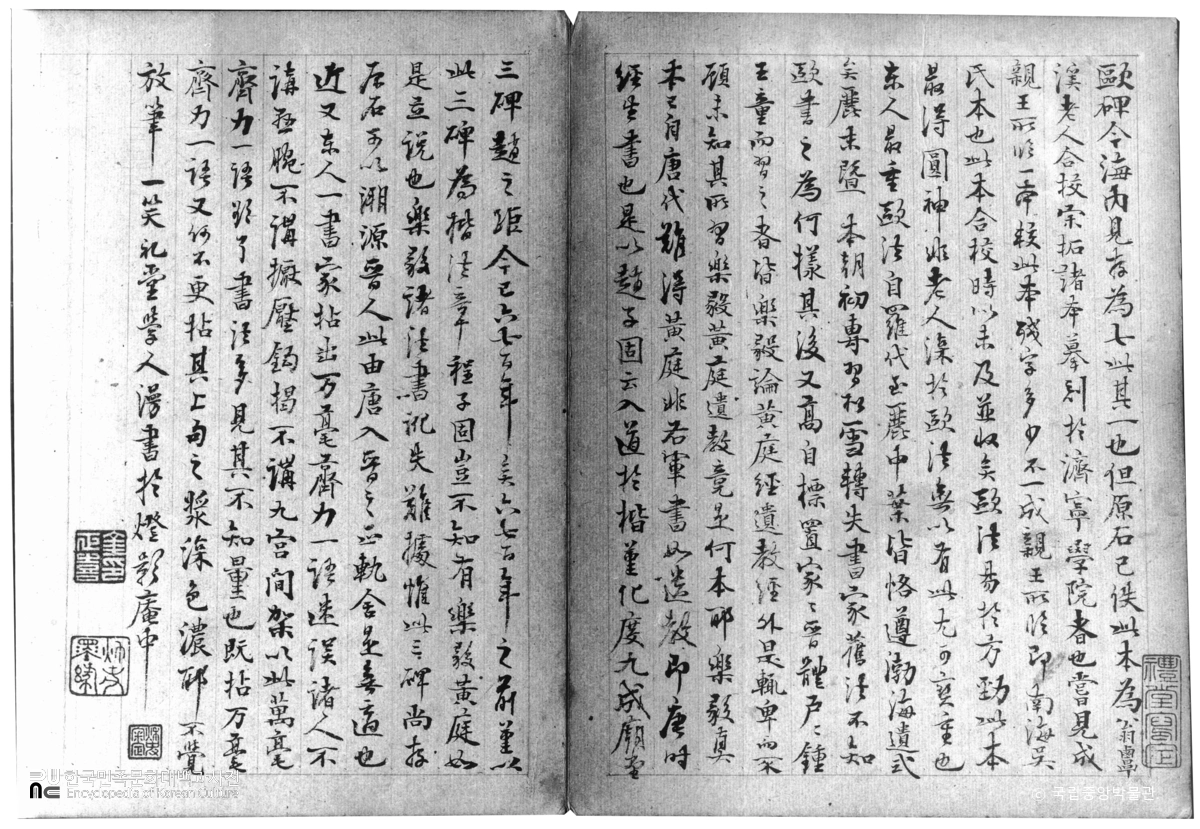 歐碑今海內見存爲七此其一也但原石已佚此本爲翁覃
溪老人合校宋拓諸本摹刻於濟寧學院者也嘗見成
親王所臨一本較此本殘字多少不一成親王所臨卽南海吳
氏本也此本合校時似未及並收矣歐法易於方勁此本
最得圓神非老人深於歐法無以有此尤可寶重也
東人最重歐法自羅代至麗中葉皆恪遵渤海遺式
矣麗末曁 本朝初專習松雪轉失書家舊法不知
歐書之爲何樣其後又高自標置家家晉體戶戶鍾
王童而習之者皆樂毅論黃庭經遺敎經外是輒卑而不
顧未知其所習樂毅黃庭遺敎竟是何本耶樂毅眞
本已自唐代難得黃庭非右軍書如遺敎卽唐時
經生書也是以趙子固云入道於楷菫化度九成廟堂
三碑趙之距今已六七百年矣六七百年之前菫以
此三碑爲楷法章程子固豈不知有樂毅黃庭如
是立說也樂毅諸法書訛失難據惟此三碑尚存
原石可以溯源晉人此由唐入晉之正軌舍是無適也
近又東人一書家拈出万毫齊力一語迷誤諸人不
講懸腕不講撅壓鉤揭不講九宮間架以此萬毫
齊力一語欲了書法多見其不知量也旣拈万毫
齊力一語又何不更拈其上句之漿深色濃耶不覺
放筆一笑禮堂學人漫書於燈影庵中
한국민족문화대백과사전
Encyclopedia of Korean Culture
국립중앙박물관